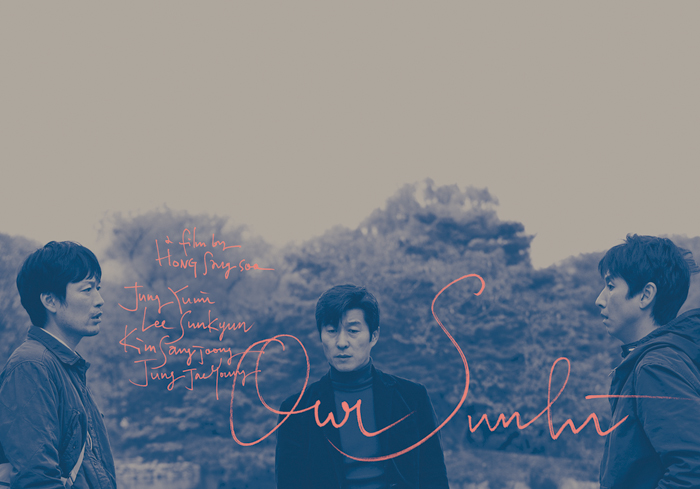 a film by
HONG Sang-soo
Jung Yumi
Lee Sunkyun
Kim Sangjoong
Jung JaeYoung
Our Sunhi